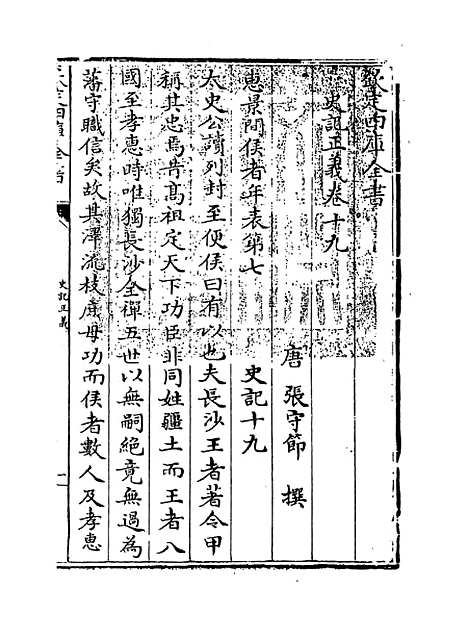 欽定四庫全書
史記正義卷十九
唐 張守節 撰
惠景間侯者年表第七 史記十九
太史公讀列封至便侯曰有以也夫長沙王者著令甲
稱其忠焉昔髙祖定天下功臣非同姓疆土而王者八
國至孝惠時唯獨長沙全禪五世以無嗣絶竟無過為
藩守職信矣故其澤流枝庶毋功而侯者數人及孝惠
史記正義
一